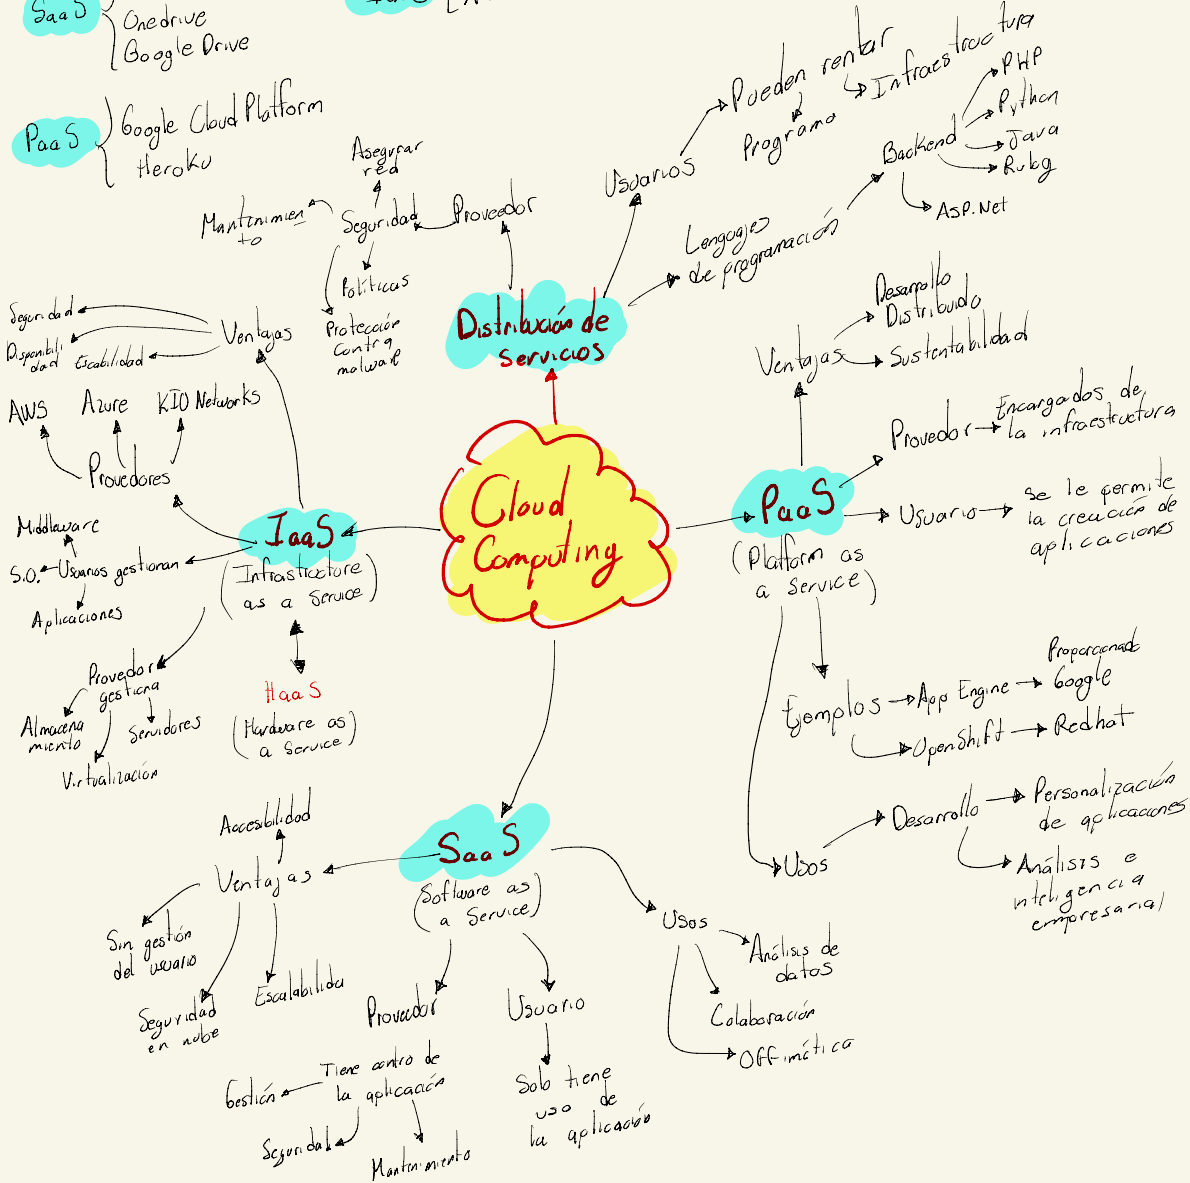 SaaS
Onedrive
Google Drive
PaaS
Google Cloud Platform
Heroku
Asegurar
red
Mantinimien
to
Seguridad
Proveedor
Políticas
Protección
contra
malware
Usuarios
Pueden rentar
Programa
Infraestructura
Lenguajes
de programación
Backend
PHP
Python
Java
Ruby
Asp.Net
Distribución de
servicios
Seguridad
Disponibili
dad
Escabilidad
Ventajas
AWS
Azure
KIO Networks
Provedores
Middleware
S.O.
Usuarios gestionan
Aplicaciones
IaaS
(Infrastructure
as a Service)
Provedor
gestiona
Almacena
miento
Servidores
Virtualización
HaaS
(Hardware as
a Service)
Cloud
Computing
Ventajas
Desarrollo
Distribuido
Sustentabilidad
PaaS
(Platform as
a Service)
Provedor
Encargados de
la infraestructura
Usuario
se le permite
la creación de
aplicaciones
Ejemplos
App Engine
Proporcionado
Google
OpenShift
Redhat
Usos
Desarrollo
Personalización
de aplicaciones
Análisis e
inteligencia
empresarial
SaaS
(Software as
a Service)
Accesibilidad
Ventajas
Sin gestión
del usuario
Seguridad
en nube
Escalabilida
Proveedor
Tiene contro de
la aplicación
Gestión
Seguridad
Mantenimiento
Usuario
Solo tiene
uso de
la aplicación
Usos
Análisis de
datos
Colaboración
Offimática